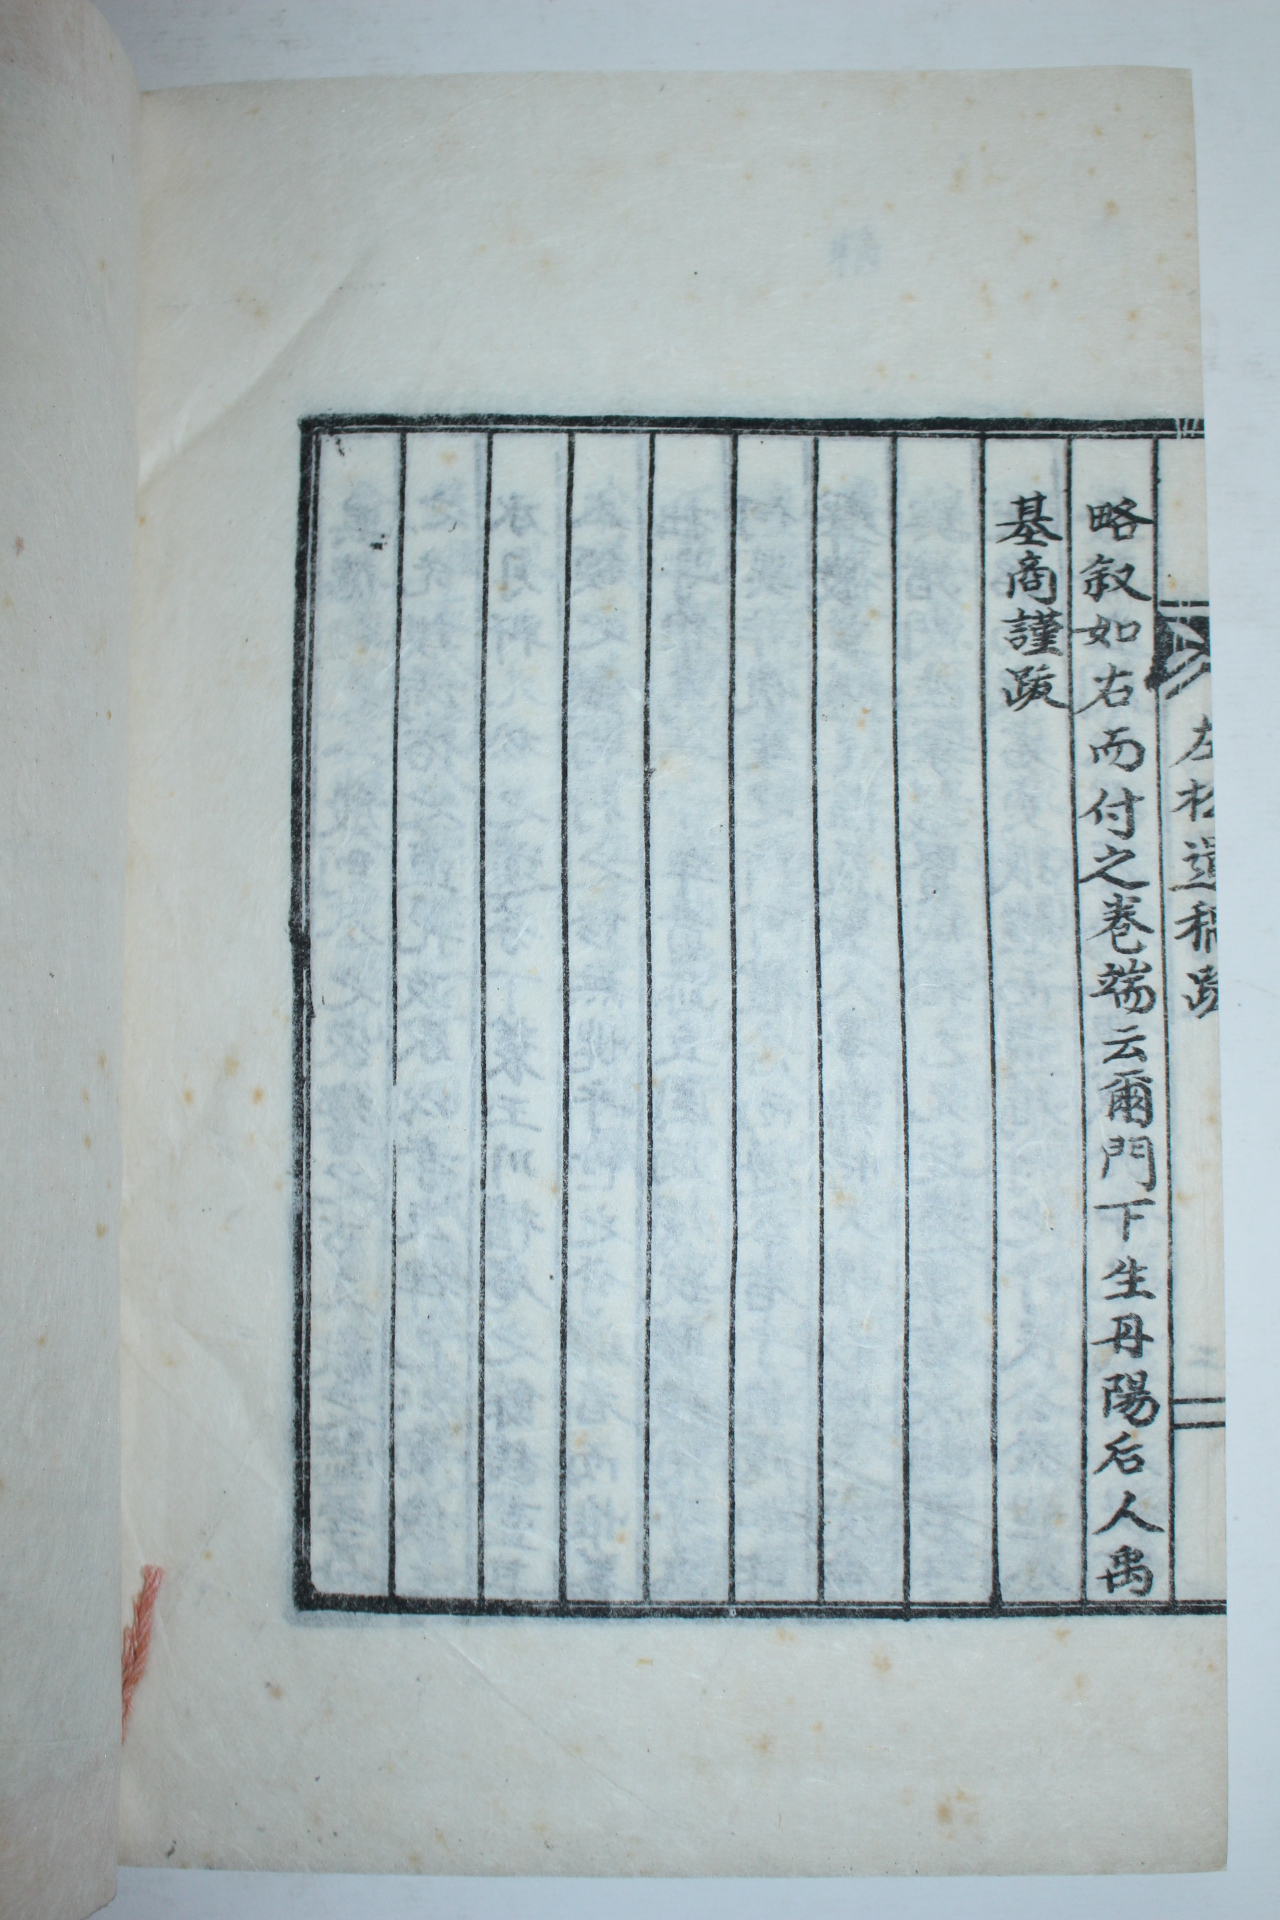 左松遺稿跋
略叙如右而付之卷端云爾門下生丹陽后人禹
基商謹跋